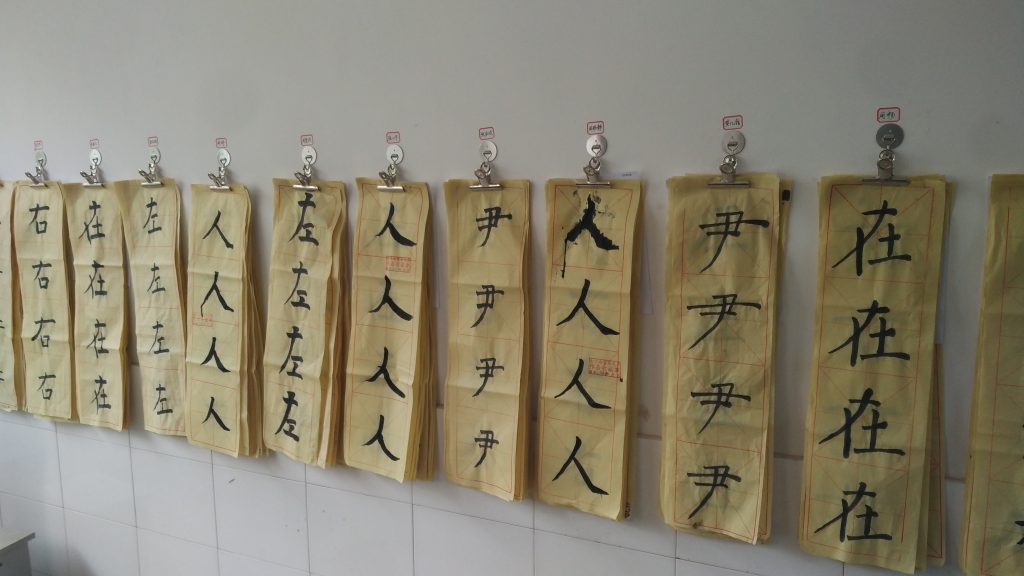 右
右
右
右
在
在
在
在
左
左
左
左
人
人
人
人
左
左
左
左
人
人
人
人
尹
尹
尹
尹
人
人
人
人
尹
尹
尹
尹
在
在
在
在